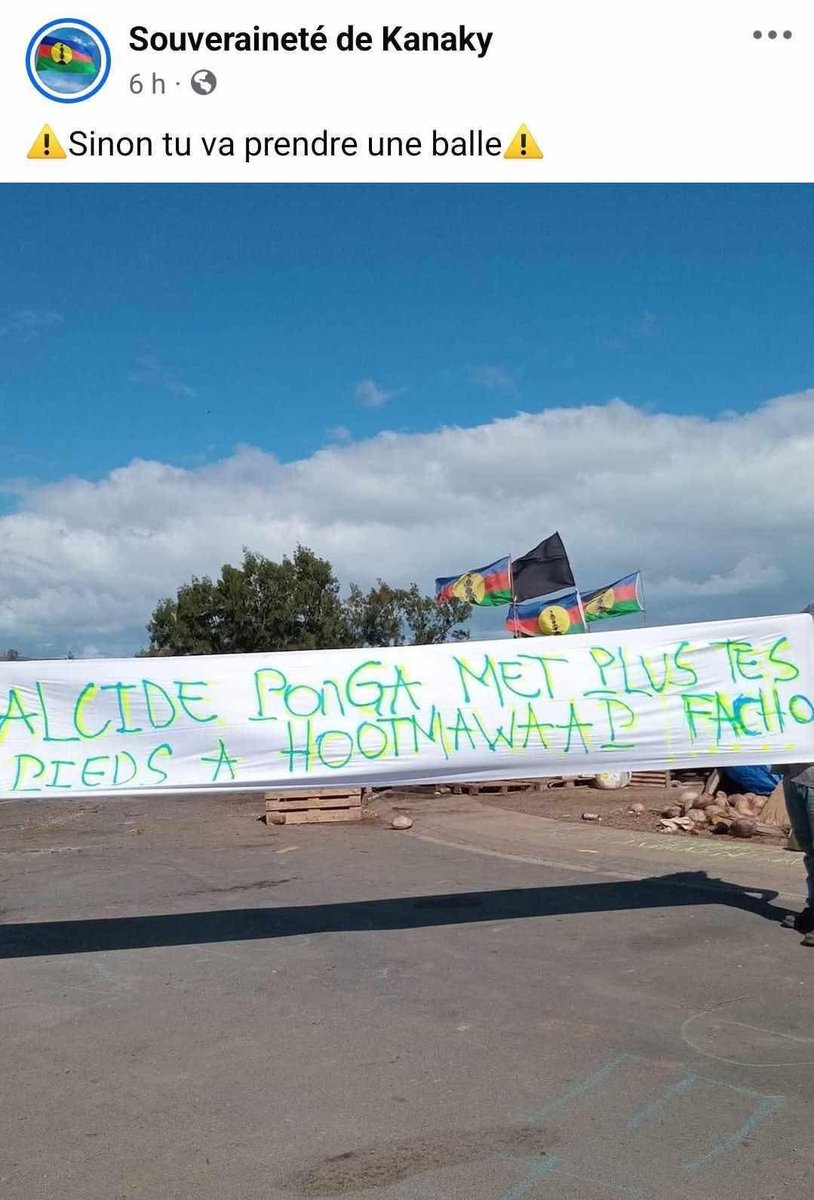 Souveraineté de Kanaky
6 h ·
⚠️Sinon tu va prendre une balle⚠️
ALCIDE PONGA MET PLUS TES
PIEDS A HOOTMAWAAP FACHO